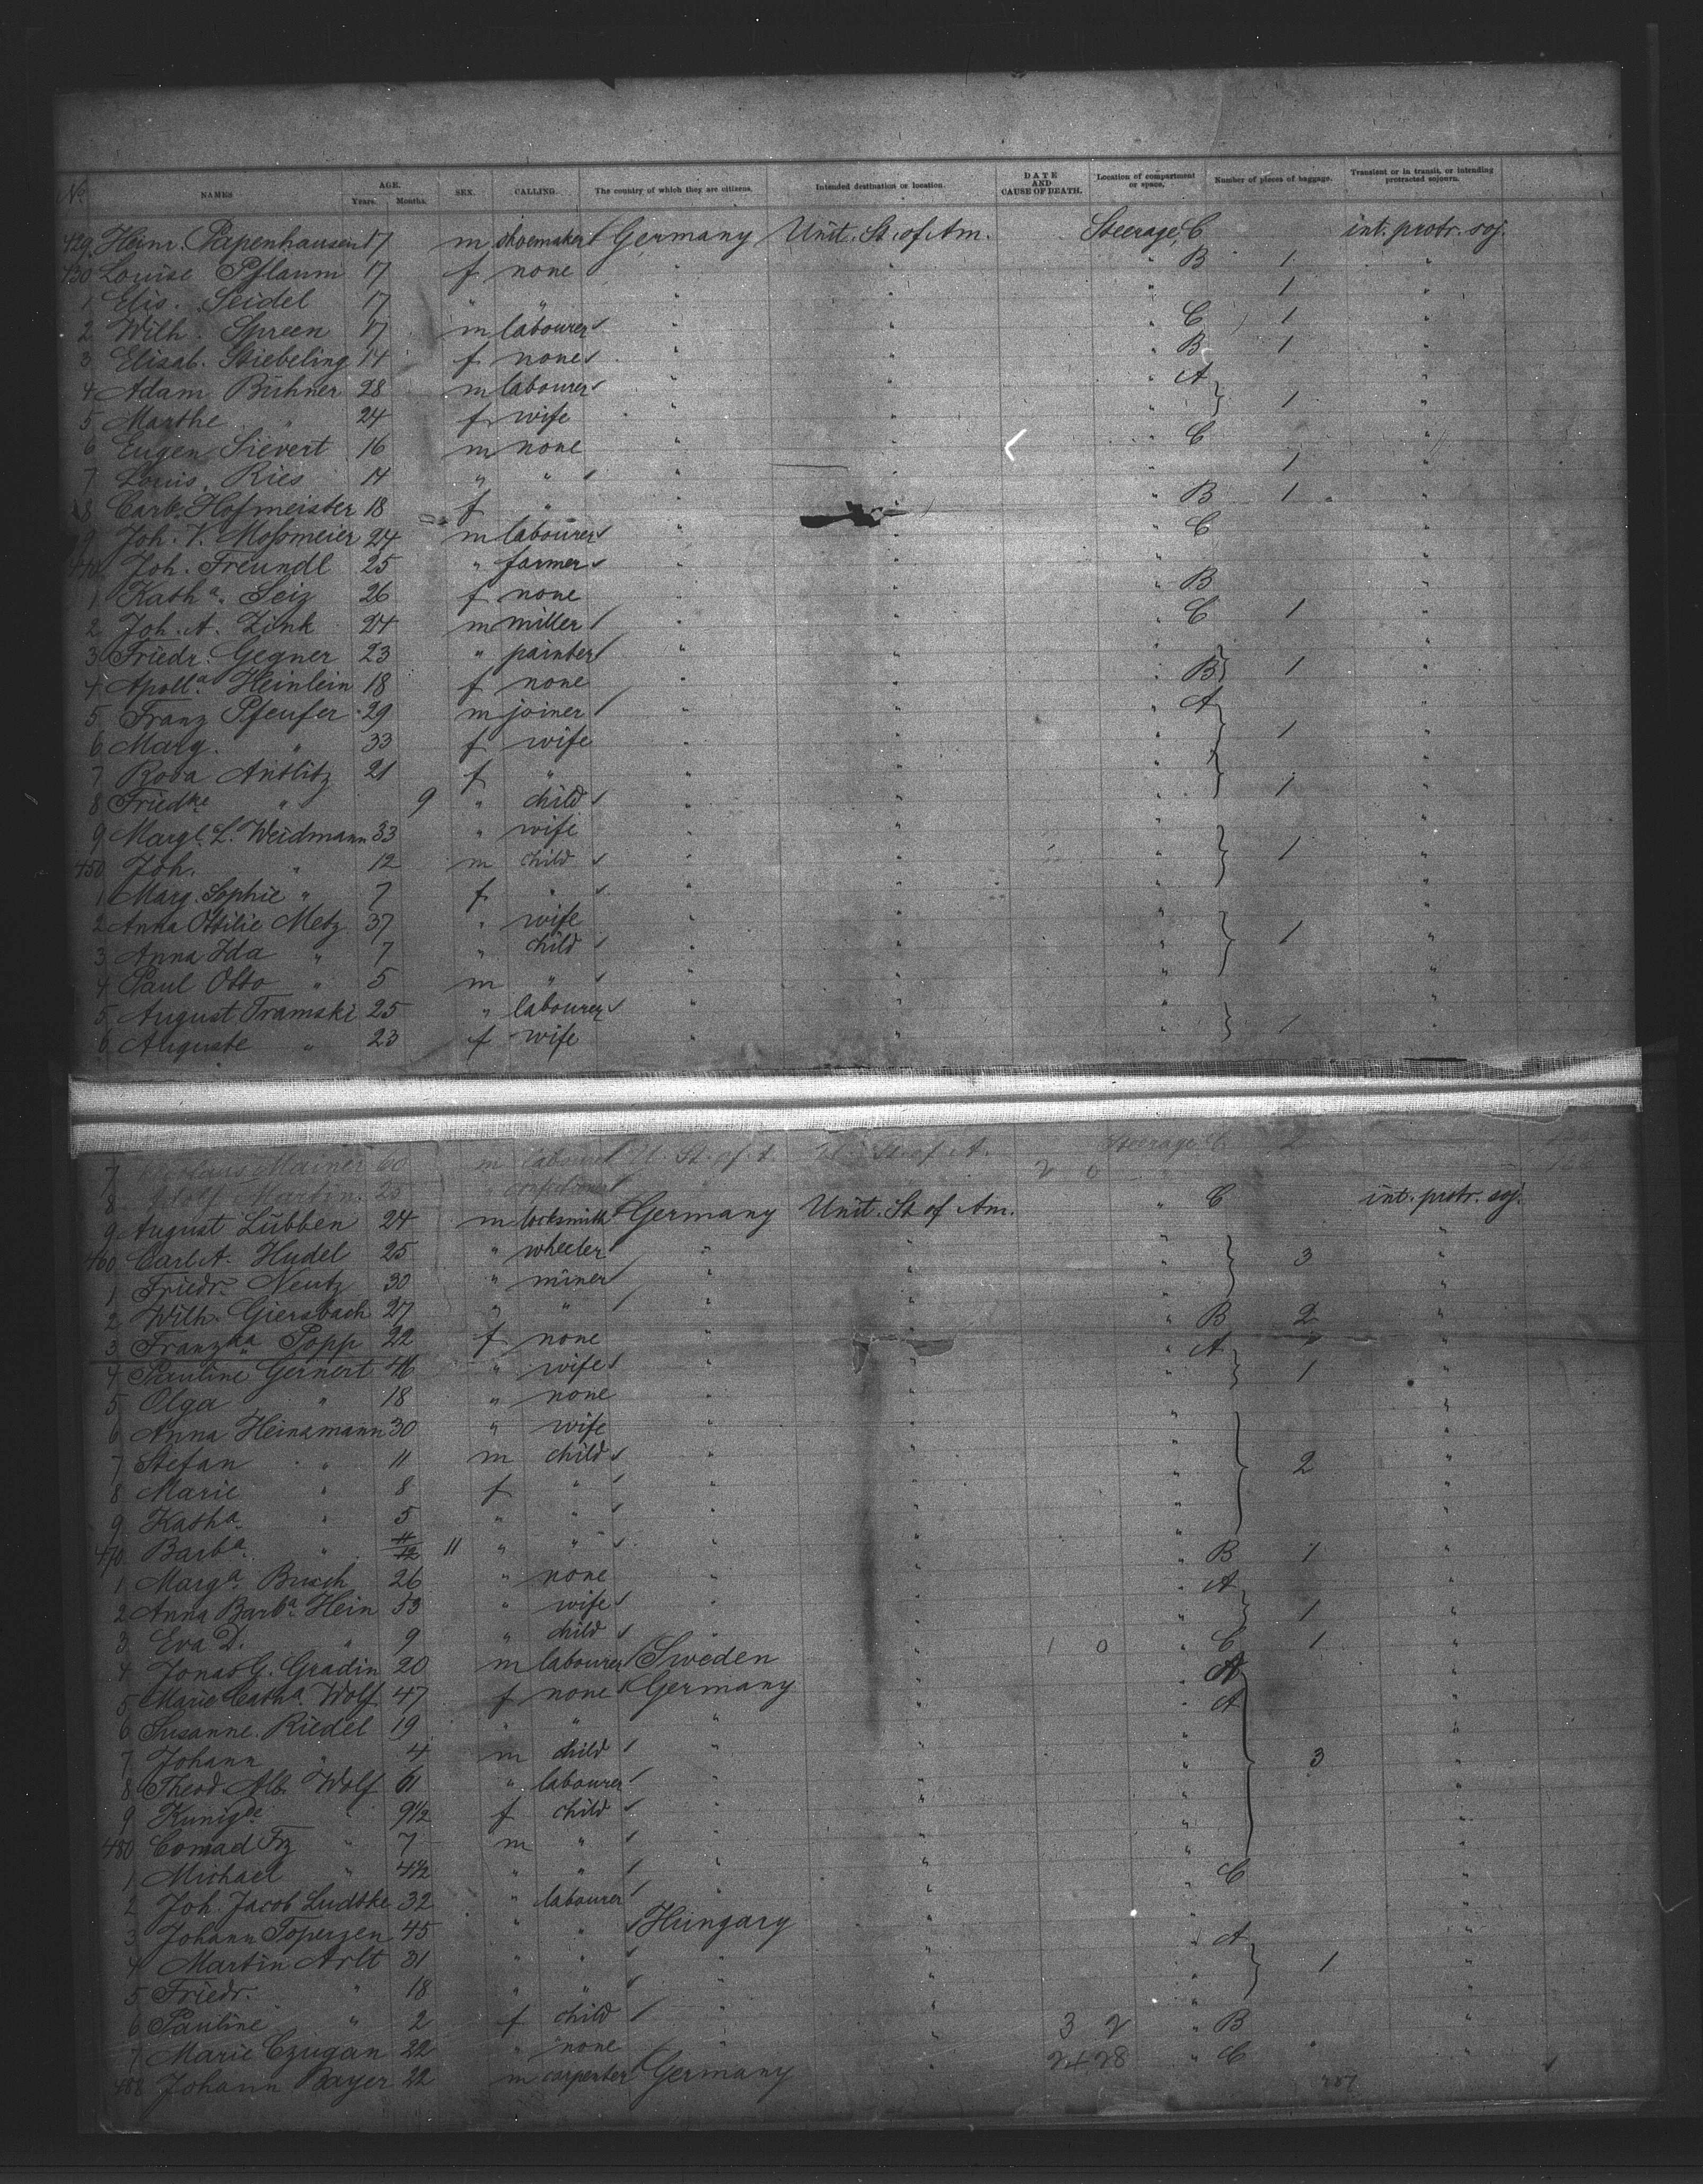 No NAMES AGE. Years. Months. SEX. CALLING. The country of which they are citizens. Intended destination or location. DATE AND CAUSE OF DEATH. Location of compartment or space. Number of pieces of baggage. Transient or in transit, or intending protracted sojourn.
429 Heinr. Papenhausen 17 m shoemaker Germany Unit. St. of Am. Steerage, C int. protr. soj.
430 Louise Pflaum 17 f none " " " B 1 "
1 Elis. Seidel 17 " " " " " 1 "
2 Wilh. Spreen 17 m labourer " " " C 1 "
3 Elisab. Stiebeling 14 f none " " " B 1 "
4 Adam Bühner 28 m labourer " " " A "
5 Marthe " 24 f wife " " " 1 "
6 Eugen Sievert 16 m none " " " C "
7 Louis Ries 14 " " " " " 1 "
8 Cark. Hofmeister 18 f " " " " B 1 "
9 Joh. V. Moßmeier 24 m labourer " " " C "
440 Joh. Freundl 25 " farmer " " " "
1 Katha. Seiz 26 f none " " " B "
2 Joh. A. Zink 24 m miller " " " C 1 "
3 Friedr. Gegner 23 " painter " " " "
4 Apolla. Heinlein 18 f none " " " B 1 "
5 Franz Pfeufer 29 m joiner " " " A "
6 Marg. " 33 f wife " " " 1 "
7 Rosa Antlitz 21 f " " " " "
8 Friedke " 9 " child " " " 1 "
9 Margt. L. Weidmann 33 " wife " " " "
450 Joh. " 12 m child " " " 1 "
1 Marg. Sophie " 7 f " " " " "
2 Anna Ottilie Metz 37 " wife " " " "
3 Anna Ida " 7 " child " " " 1 "
4 Paul Otto " 5 m " " " " "
5 August Tramski 25 " labourer " " " "
6 Auguste " 23 f wife " " " 1 "
7 Mainer 60 m labourer U. St. of A. U. St. of A. 2 0 Steerage C 2
8 Adolf Martin 25 "
9 August Lübben 24 m locksmith Germany Unit. St. of Am. " C int. protr. soj.
460 Carl A. Hudel 25 " wheeler " " " "
1 Friedr. Neutz 30 " miner " " " 3 "
2 Wilh. Giersbach 27 " " " " " "
3 Franzka Popp 22 f none " " " B 2 "
4 Pauline Gernert 46 " wife " " " A "
5 Olga " 18 " none " " " 1 "
6 Anna Heinzmann 30 " wife " " " "
7 Stefan " 11 m child " " " "
8 Marie " 8 f " " " " 2 "
9 Katha. " 5 " " " " " "
470 Barba. " 11/12 11 " " " " " "
1 Marga. Busch 26 " none " " " B 1 "
2 Anna Barba. Hein 53 " wife " " " A "
3 Eva D. " 9 " child " " " 1 "
4 Jonas G. Gradin 20 m labourer Sweden " 1 0 " C 1 "
5 Marie Catha. Wolf 47 f none Germany " " A "
6 Susanne Riedel 19 " " " " " A "
7 Johann " 4 m child " " " "
8 Theod. Alb. Wolf 61 " labourer " " " 3 "
9 Kunigde " 9½ f child " " " "
480 Conrad Fz " 7 m " " " " "
1 Michael " 4½ " " " " " "
2 Joh. Jacob Ludtke 32 " labourer " " " C "
3 Johann Toperzen 45 " " Hungary " " "
4 Martin Arlt 31 " " " " " A "
5 Friedr. " 18 " " " " " 1 "
6 Pauline " 2 f child " " " "
7 Marie Czugan 22 " none " " 3 2 " B "
488 Johann Bayer 22 m carpenter Germany " 24 28 " C "